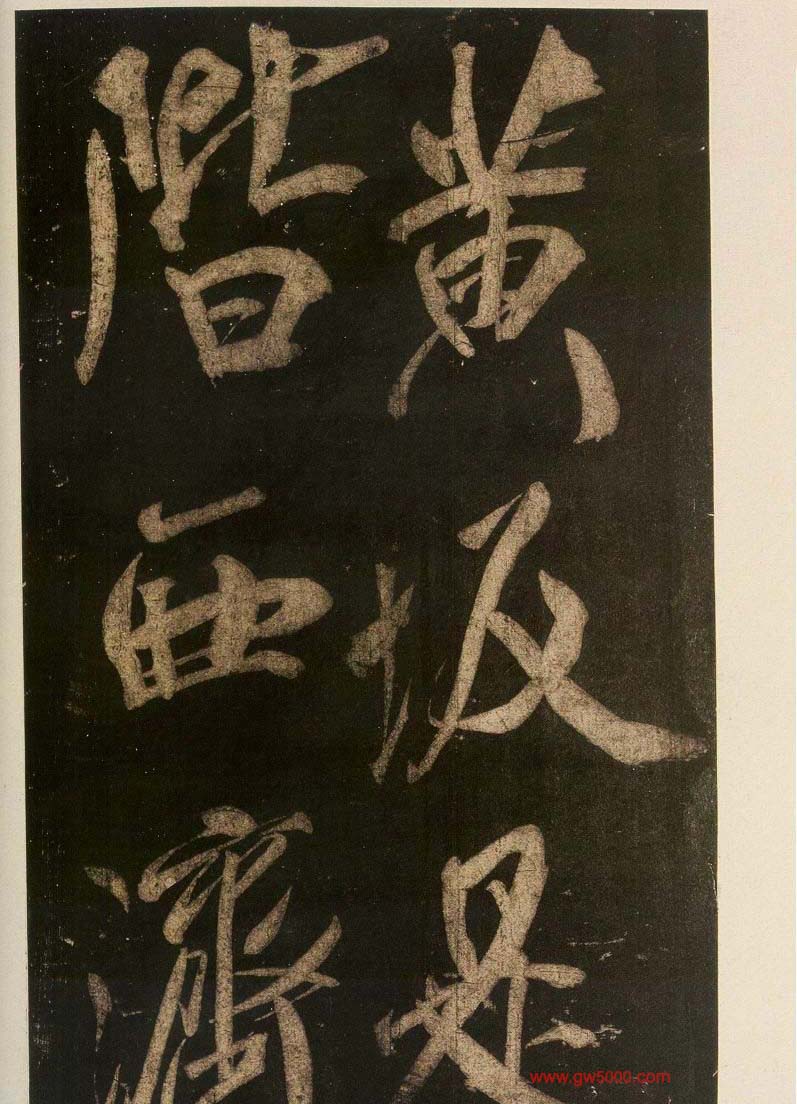 黃坂是
階西濟
www.gw5000.com